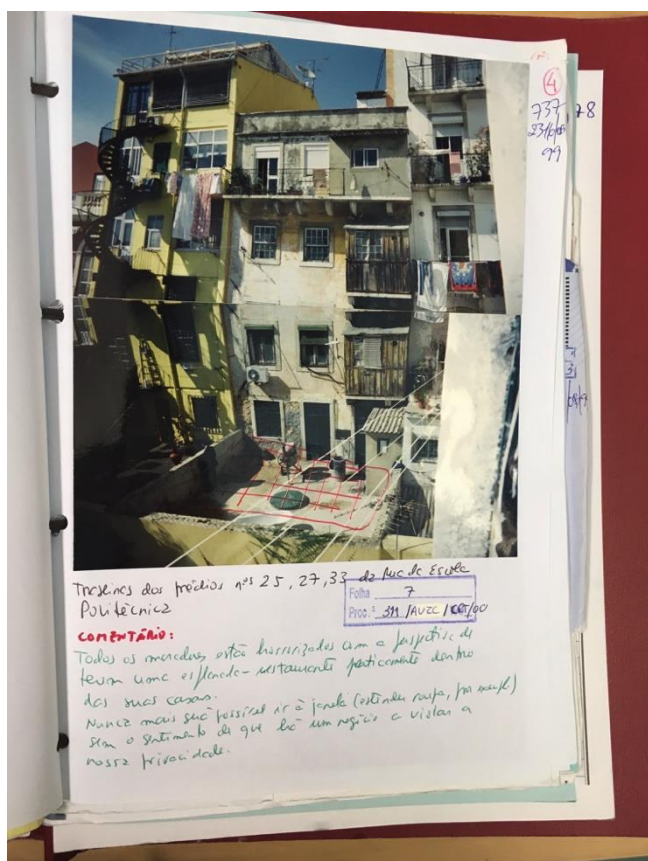 4
737
99
78
Traseiras dos prédios nºs 25, 27, 33 da Rua da Escola
Politécnica
Folha 7
Proc.º 311 /AUZC /
COMENTÁRIO:
Todos os moradores estão horrorizados com a perspetiva de
terem uma esplanada-restaurante praticamente dentro
das suas casas.
Nunca mais será possível ir à janela (estender roupa, por exemplo)
sem o sentimento de que há um negócio a violar a
nossa privacidade.